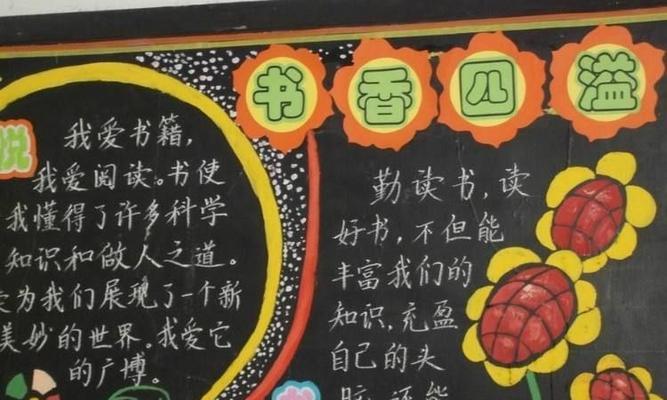 书香四溢
悦
我爱书籍，
我爱阅读。书使
我懂得了许多科学
知识和做人之道。
为我们展现了一个新
美妙的世界。我爱它
的广博。
勤读书，读
好书，不但能
丰富我们的
知识，充盈
自己的头
还能